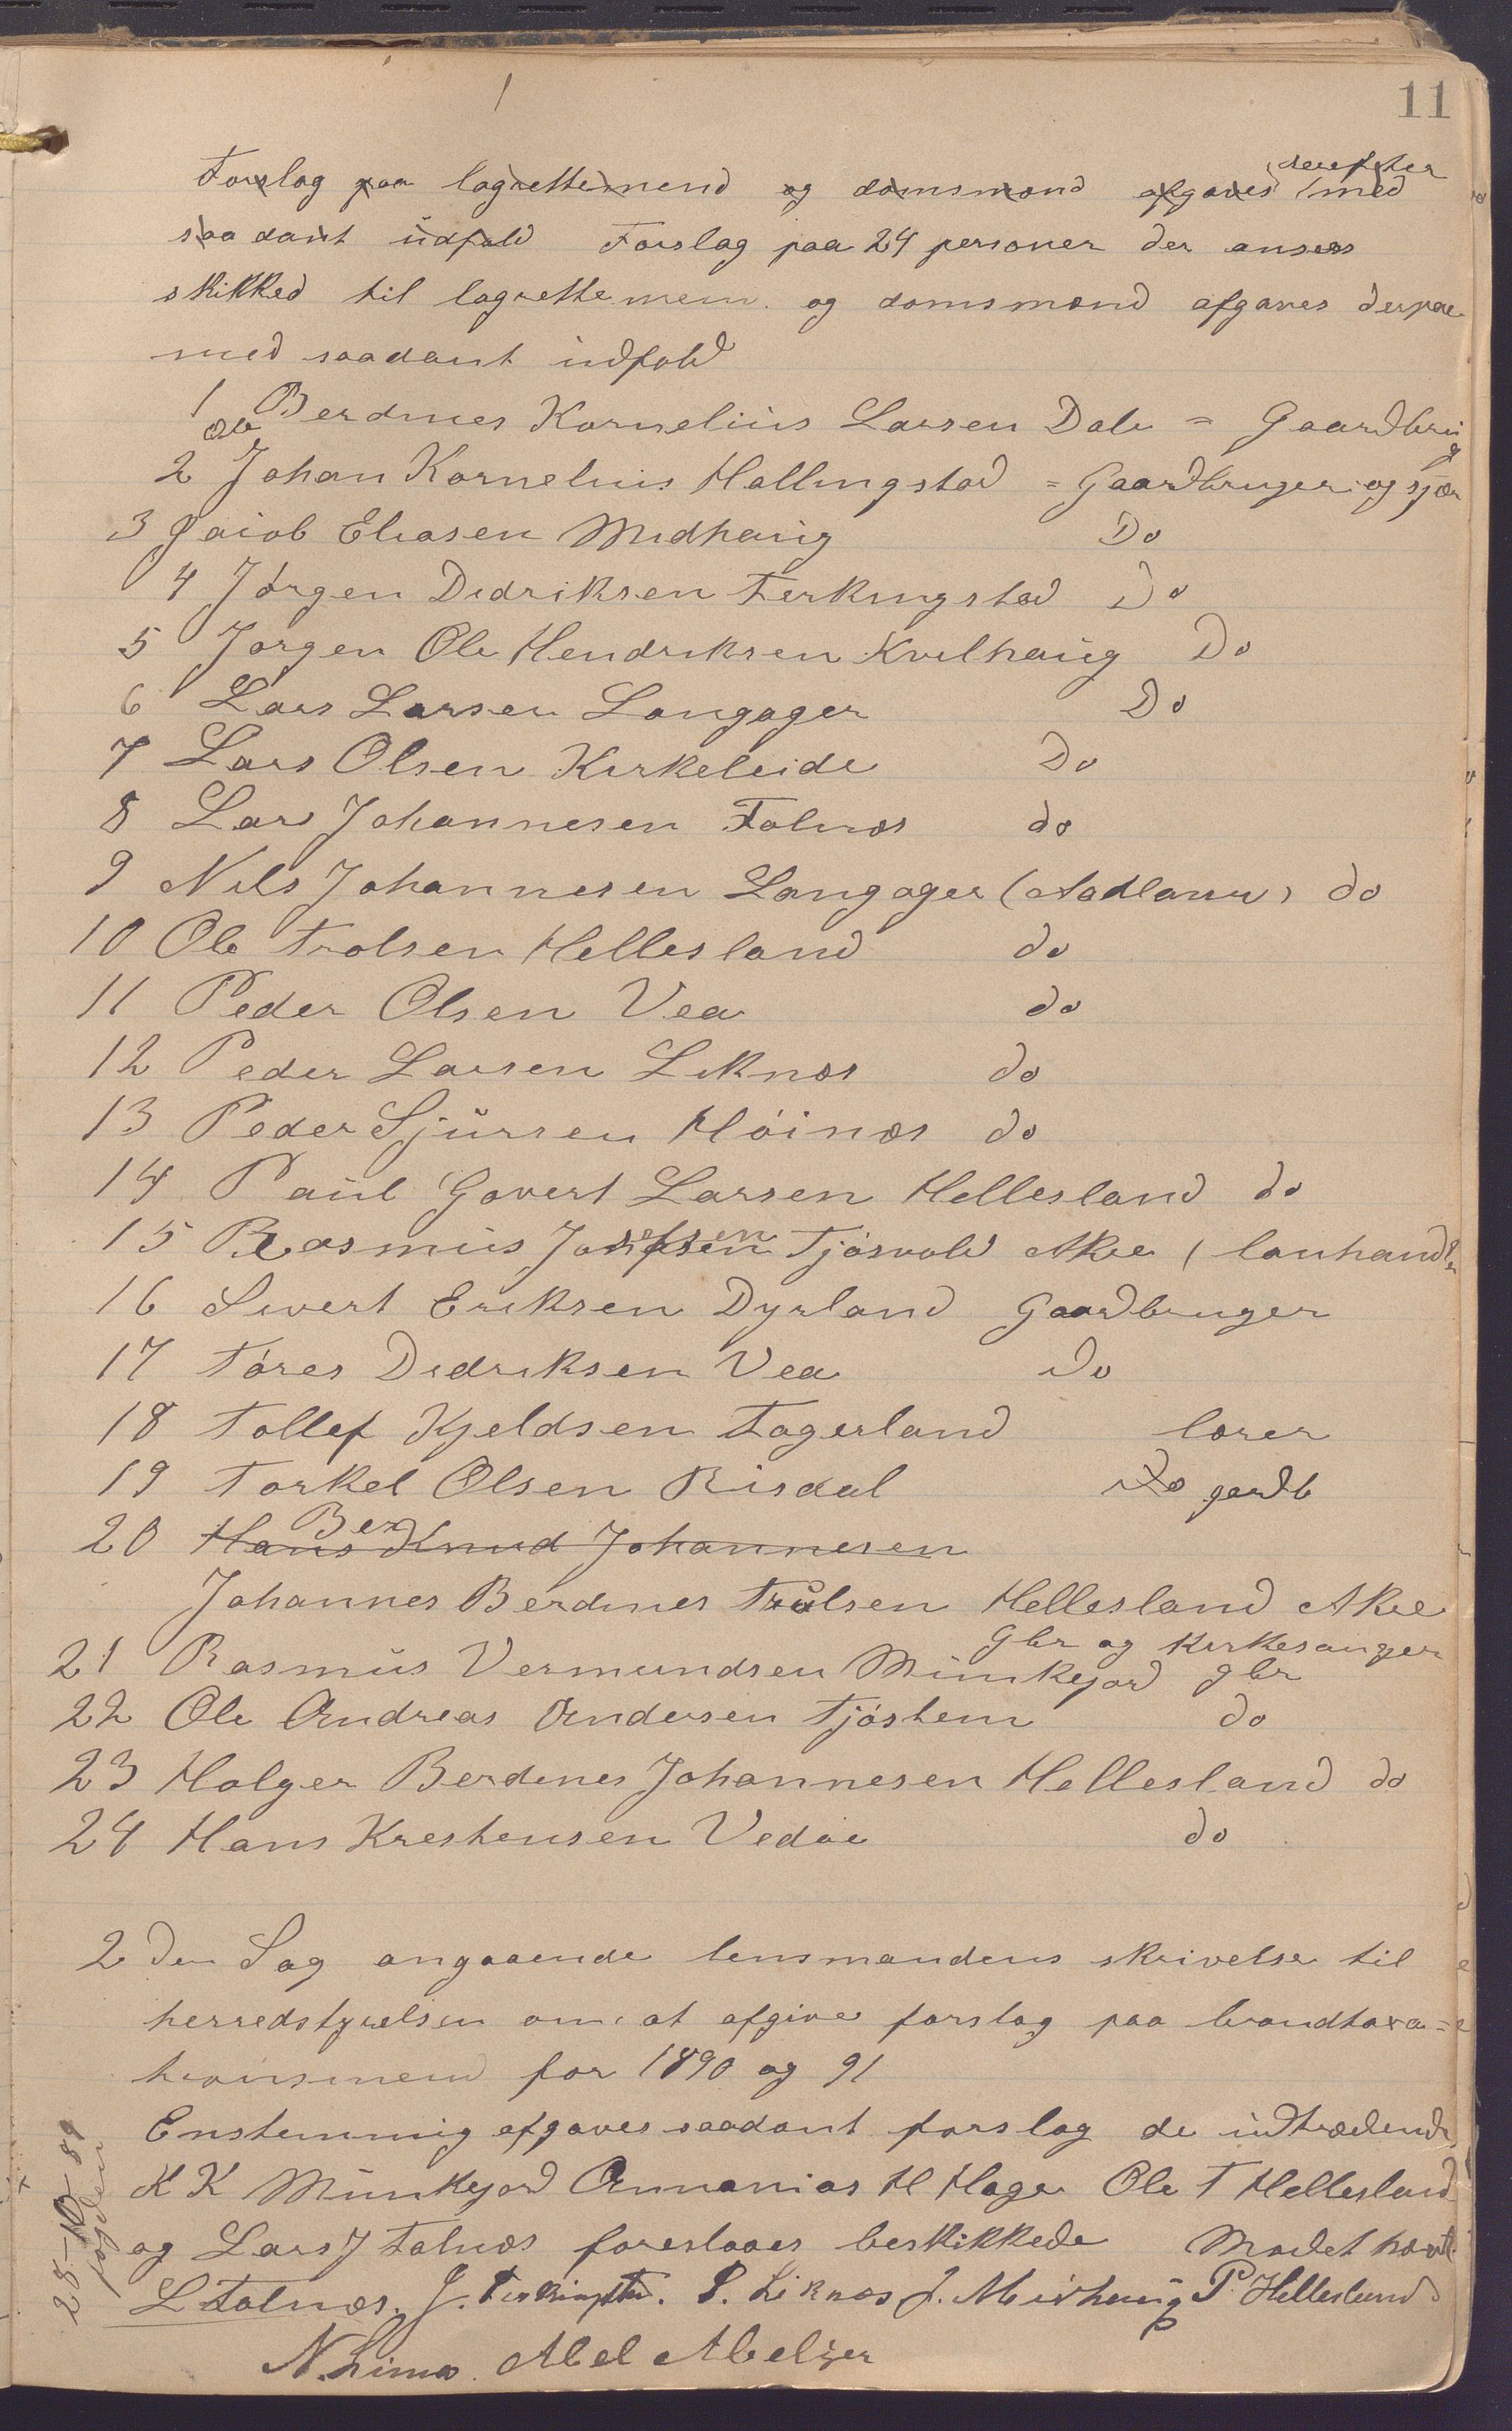 11
derefter
Forslag paa lagrettemend og domsmænd afgaves med
saadant udfald Forslag paa 24 personer der ansees
skikked til lagrettemem og domsmænd afgaves derpaa
med saadant udfald
1 Ole Berdines Kornelius Larsen Dale = Gaardbrug
2 Johan Kornelius Hallingstad = Gaardbruger og sjøm
3 Jaiob Eliasen Midhaug Do
4 Jørgen Didriksen Ferkingstad Do
5 Jørgen Ole Hendriksen Kvilhaug Do
6 Lars Larsen Langager Do
7 Lars Olsen Kirkeleide Do
8 Lars Johannesen Falnæs do
9 Nils Johannesen Langager (Aadland) do
10 Ole Trolsen Hellesland do
11 Peder Olsen Vea do
12 Peder Larsen Liknæs do
13 Peder Sjursen Høinæs do
14 Paul Govert Larsen Hellesland do
15 Rasmus Josefsen Tjøsvold Akre ( lanhandler
16 Sivert Eriksen Dyrland Gaardbruger
17 Tøres Didriksen Vea Do
18 Tollef Kjeldsen Fagerland lærer
19 Torkel Olsen Risdal Do gardb
Ber
20 Hans Knud Johannesen
Johannes Berdines Trulsen Hellesland Akre
gbr og Kirkesanger
21 Rasmus Vermundsen Munkejord gbr
22 Ole Andreas Andersen Tjøstem do
23 Holger Berdines Johannesen Hellesland do
24 Hans Kreshensen Vedøe do
2 den Sag angaaende lensmandens skrivelse til
herredstyrelsen om at afgive forslag paa brandtaxa=
tionsmend for 1890 og 91
Enstemmig afgaves saadant forslag de udtrædende
K K Munkejord Annanias H Hage Ole T Hellesland
og Lars J Falnæs foreslaaes beskikkede Mødet hævt
28-10-89
L Falnæs. J. Ferkingstad. P. Liknæs J. Midhaug P Hellesland
N. Limo Abel Abelseer